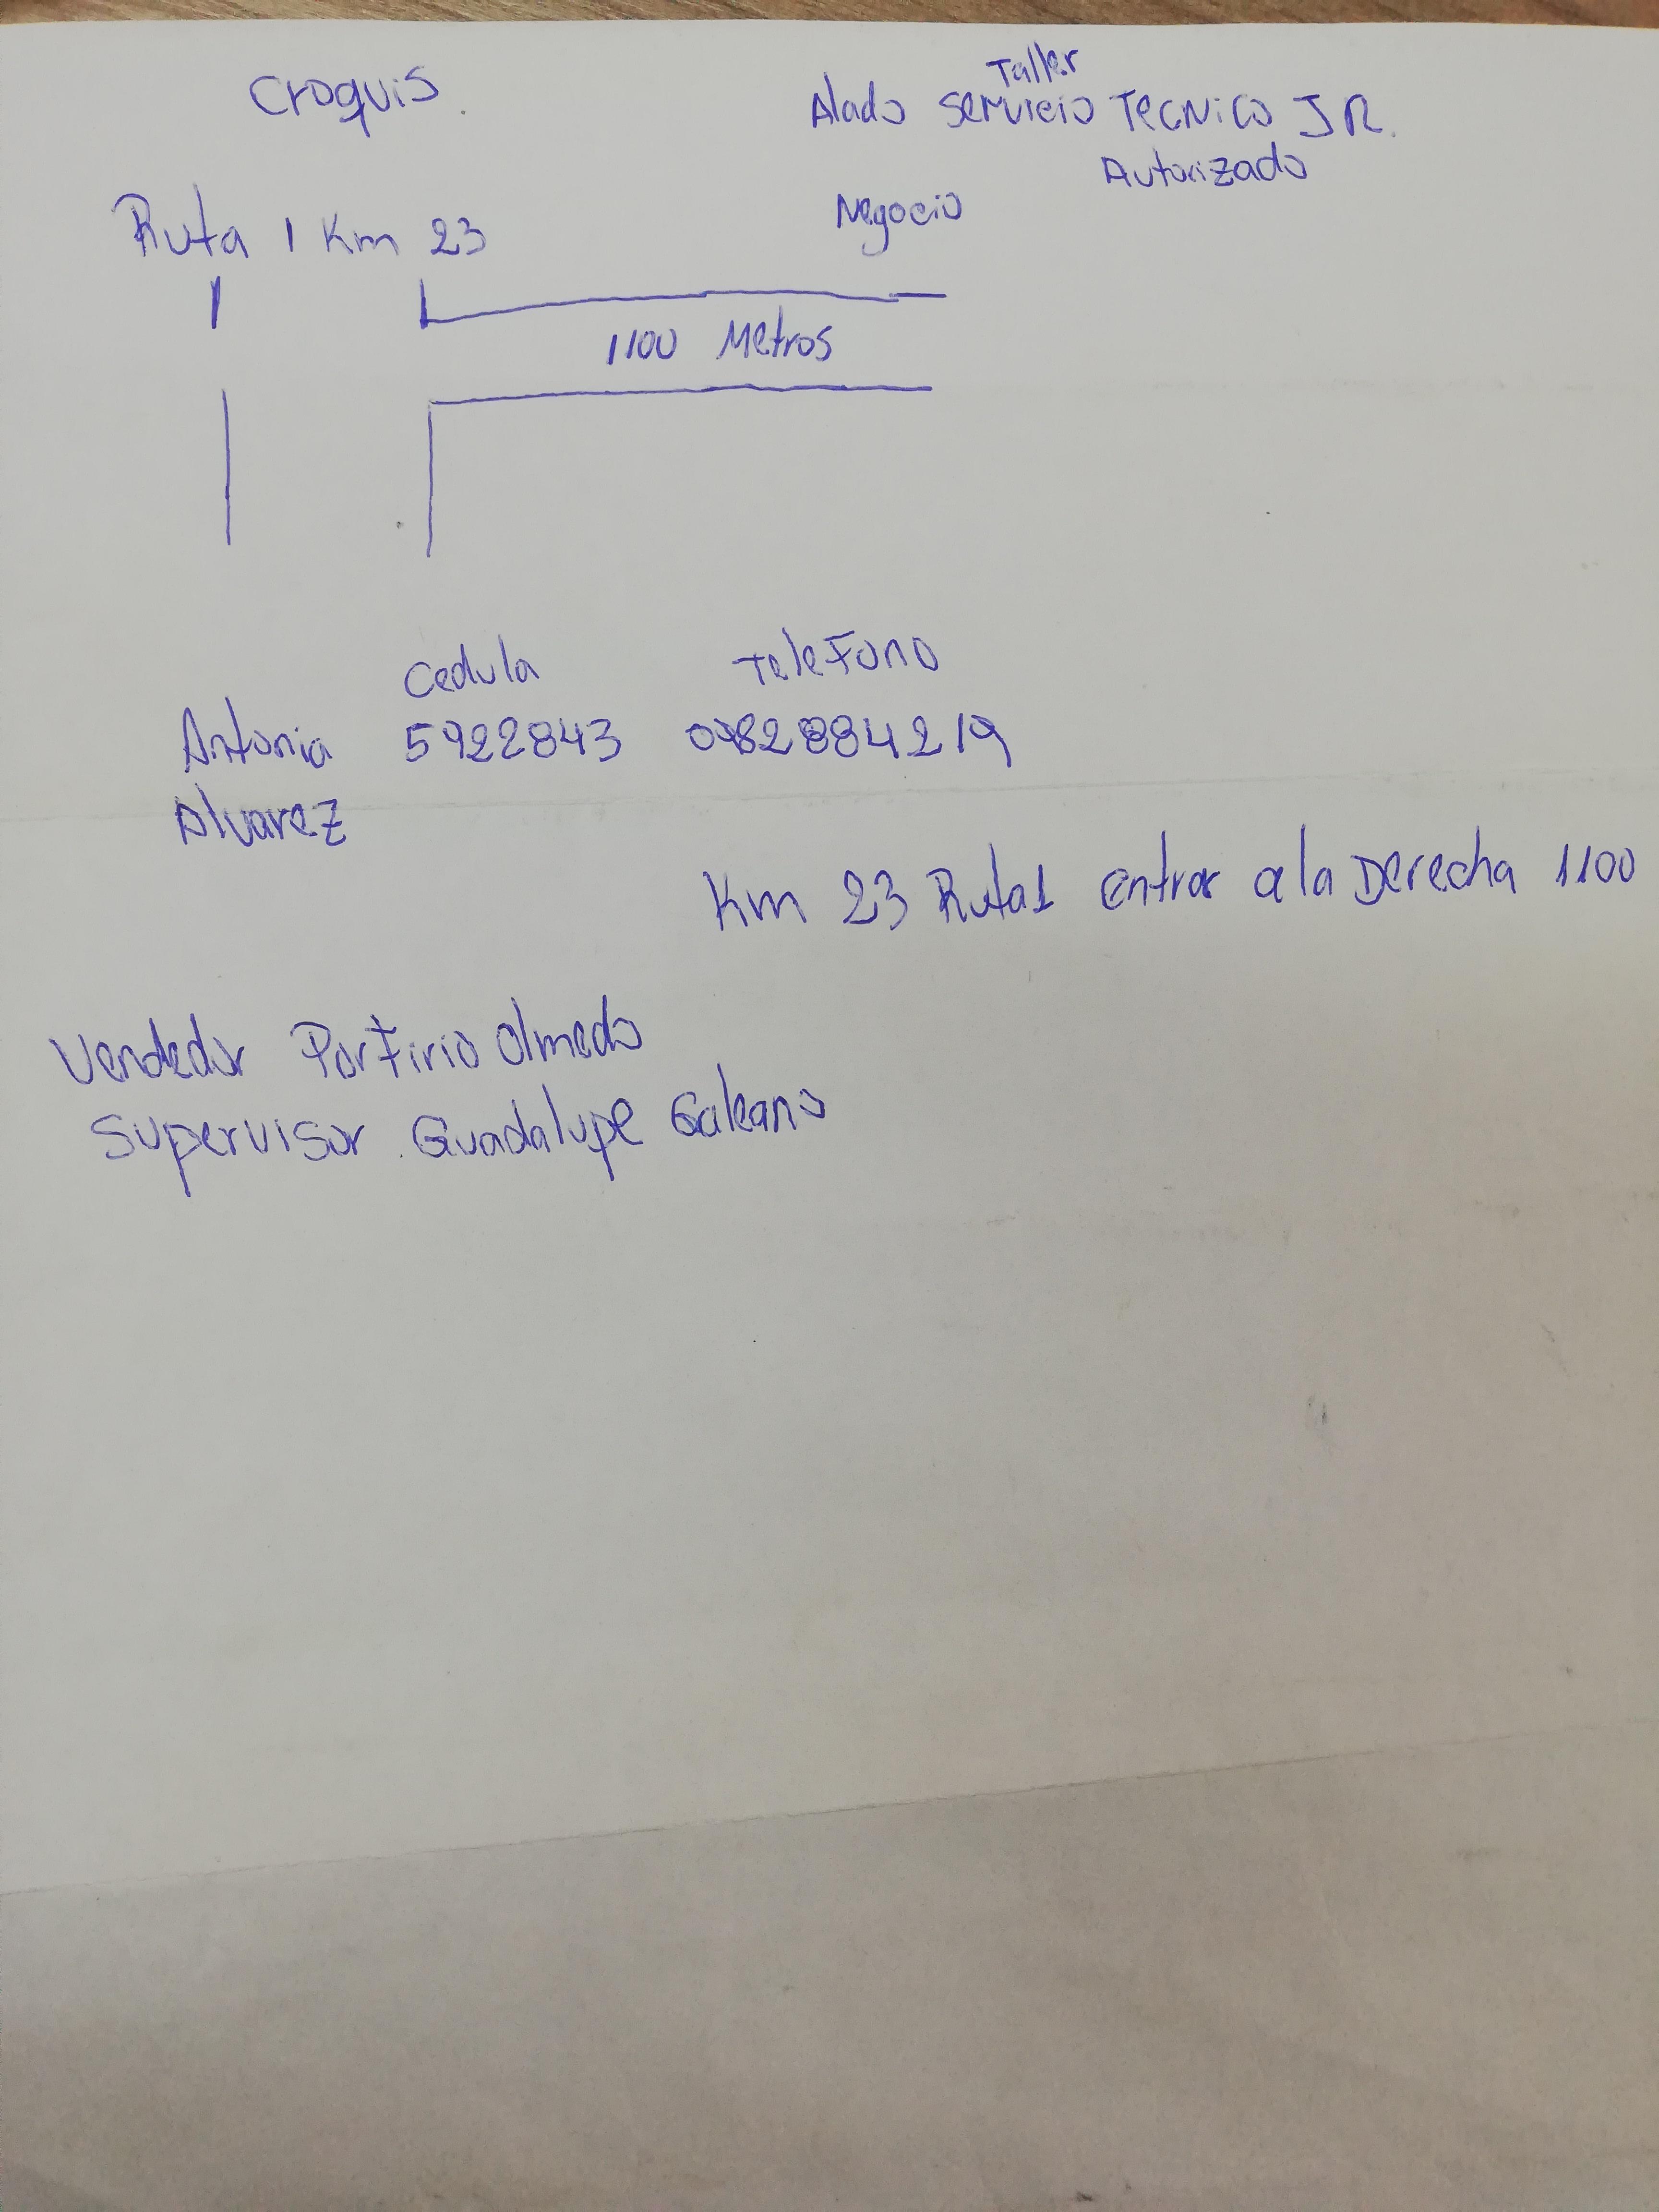 Croquis.
Taller
Alado Servicio Tecnico JR.
Autorizado
Negocio
Ruta 1 Km 23
1100 Metros
Cedula Telefono
Antonia 5922843 0982884219
Alvarez
Km 23 Ruta1 entrar a la Derecha 1100
Vendedor Porfirio Olmedo
Supervisor Guadalupe Galeano